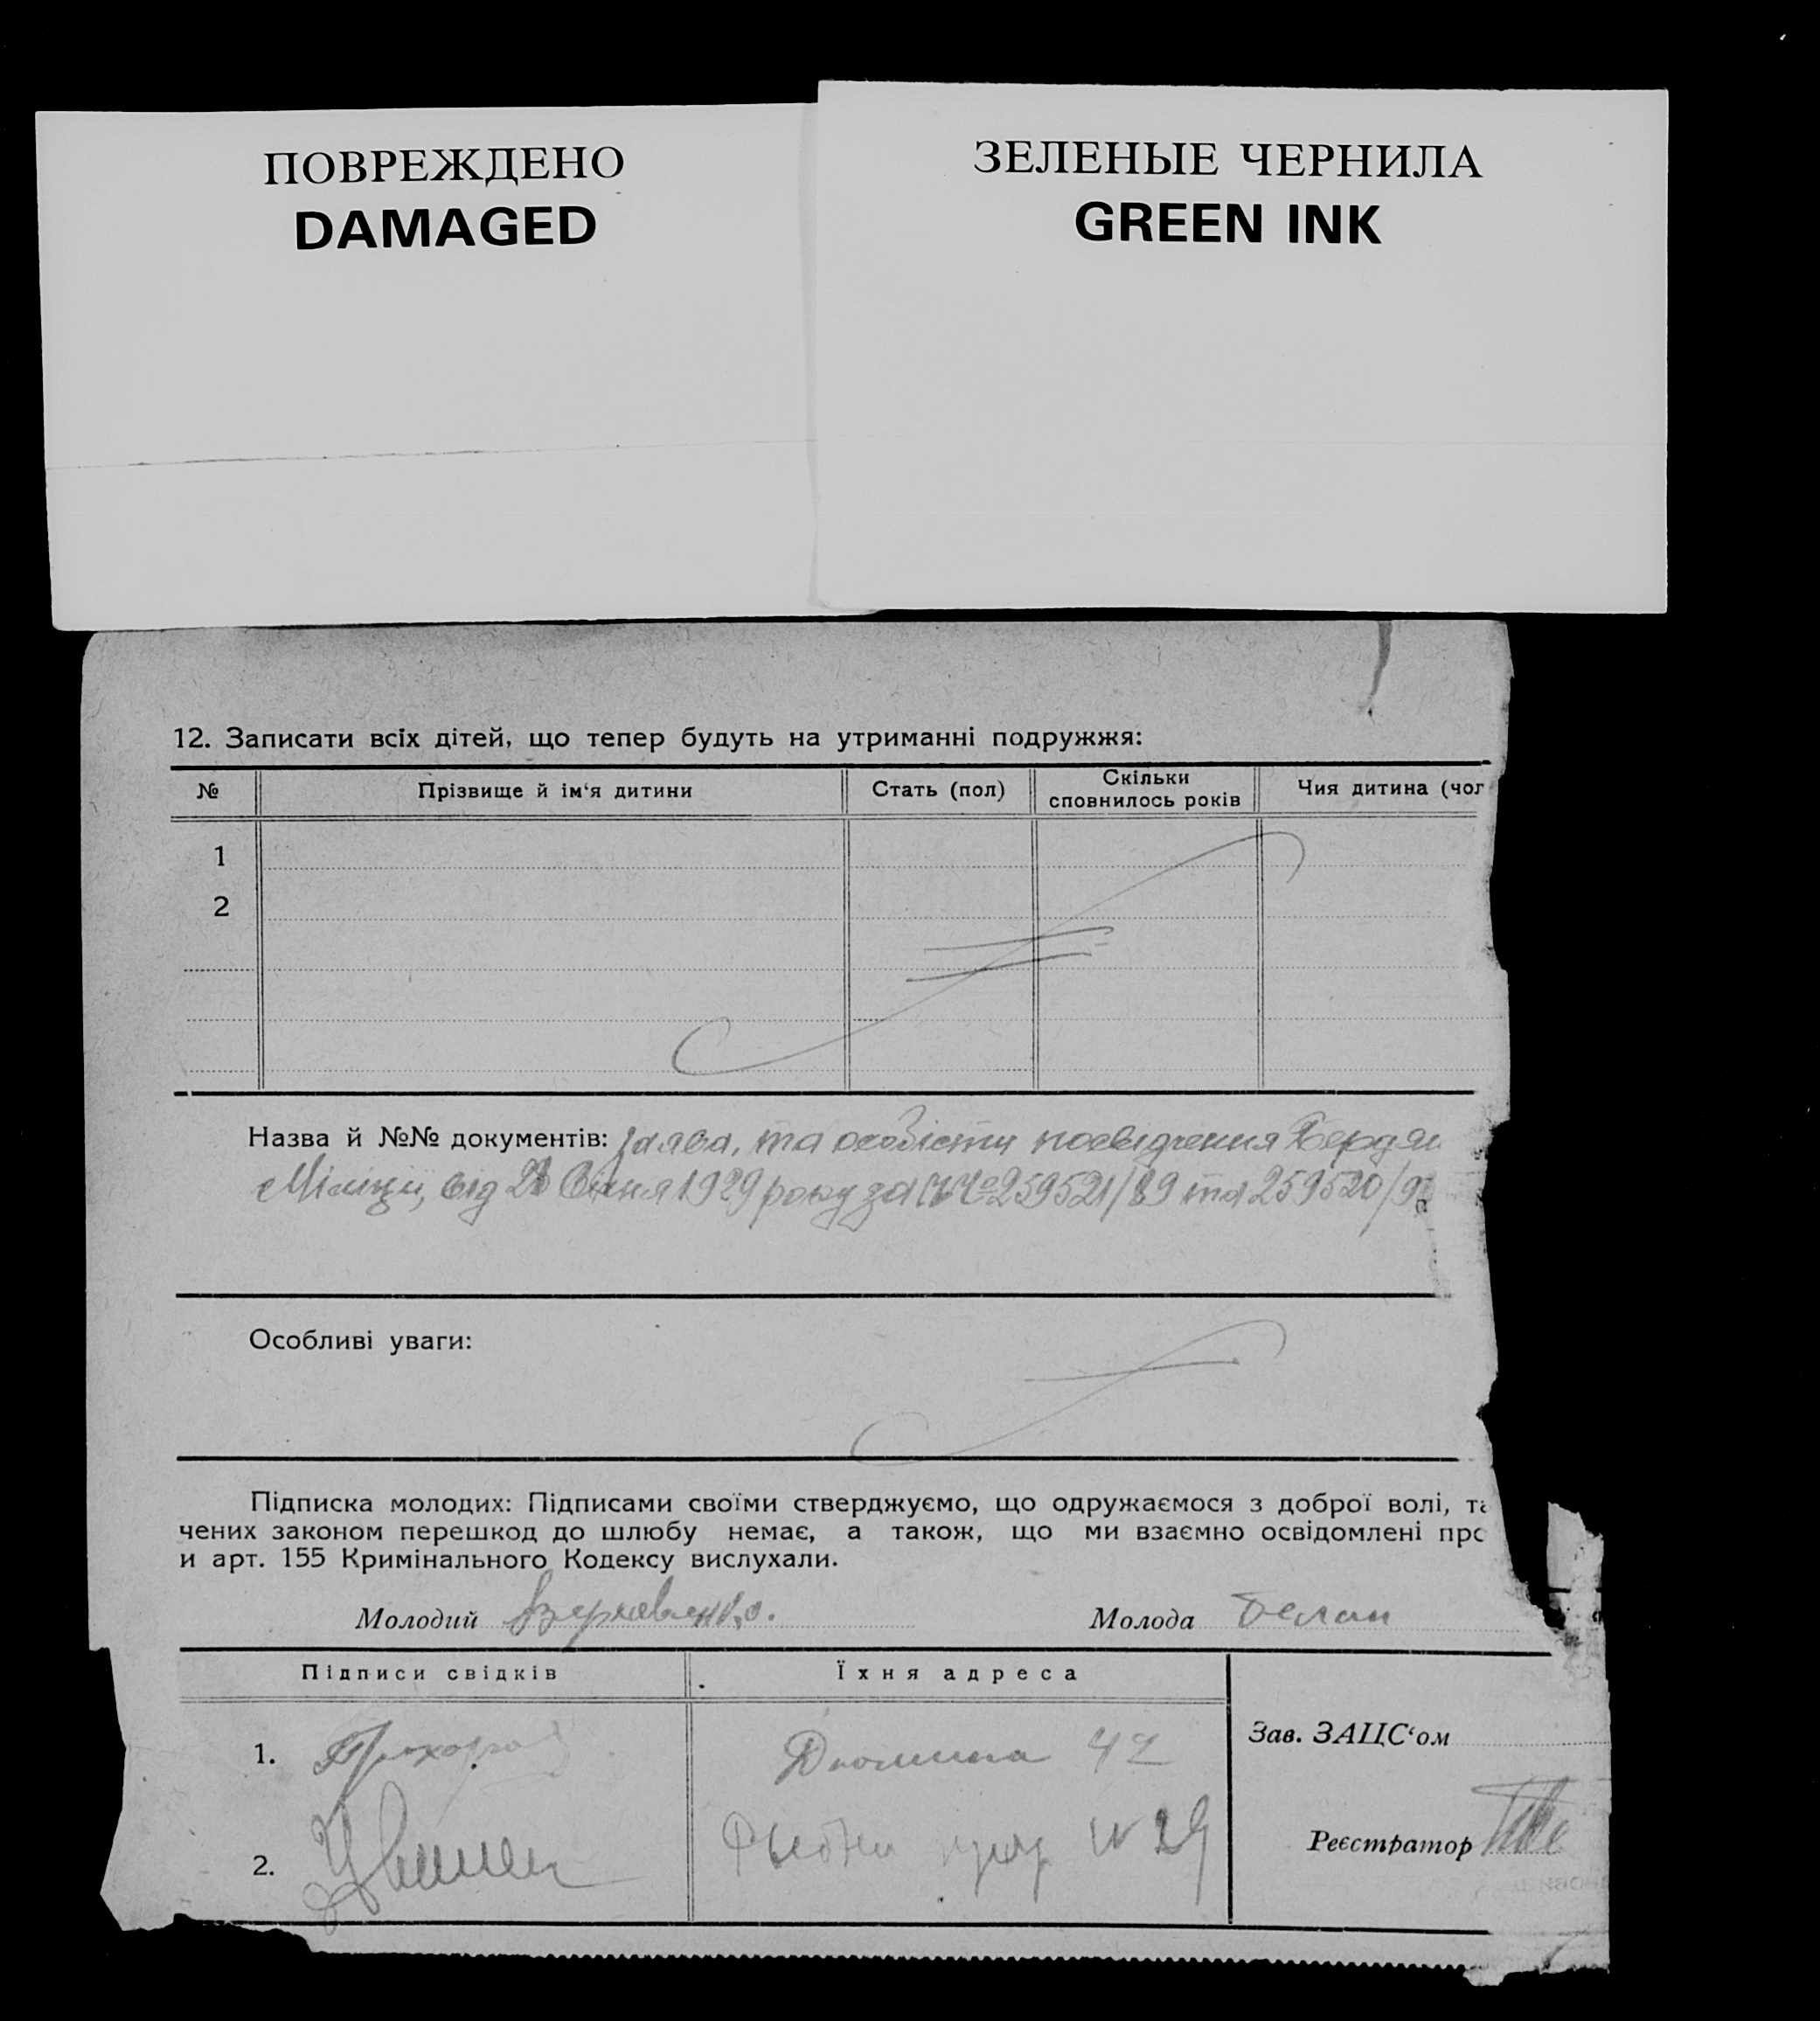 ПОВРЕЖДЕНО
DAMAGED
ЗЕЛЕНЫЕ ЧЕРНИЛА
GREEN INK
12. Записати всіх дітей, що тепер будуть на утриманні подружжя:
№ Прізвище й ім‘я дитини Стать (пол) Скільки сповнилось років Чия дитина (чол
1
2
Назва й №№ документів: Заява, та особісти посвідчення Бердян
Міліції, від 1929 року за №№ 259521/89 та 259520/9
Особливі уваги:
Підписка молодих: Підписами своїми стверджуємо, що одружаємося з доброї волі, та
чених законом перешкод до шлюбу немає, а також, що ми взаємно освідомлені про
и арт. 155 Кримінального Кодексу вислухали.
Молодий Молода Белан
Підписи свідків Їхня адреса
Зав. ЗАЦС‘ом
1. 47
2. № 29
Реєстратор